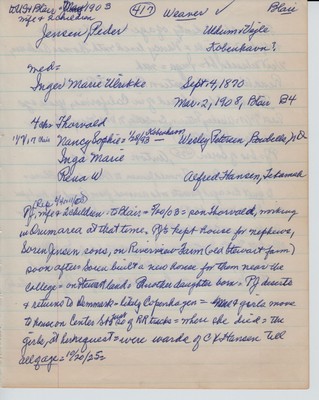 to US & Blair = 1903 (417) Weaner ✓ Blair
wife & 2 children
Jensen, Peder Uldum = Vejle
København?
med =
Inger Marie Ulrikke Sept. 4, 1870
Mar. 2, 1908, Blair B4
4 ch = Thorvald
Nancy Sophie = København — Wesley Petersen, N.D.
Inga Marie
Rena W Alfred Hansen, Tekamah
PJ, wife & 2 children = to Blair = 7/20/03 = son Thorvald, working
in Danmark at that time. PJs kept house for nephews,
Soren Jensen sons, on Riverview Farm (old Stewart farm)
soon after Soren built a new house for them near the
college = on Stewart land = Another daughter born = PJ deserts
& returns to Denmark = likely Copenhagen = & girls move
to house on Center St of RR tracks = where she died = the
girls, at her request = were wards of CX Hansen till
all of age = 10/20/25 =